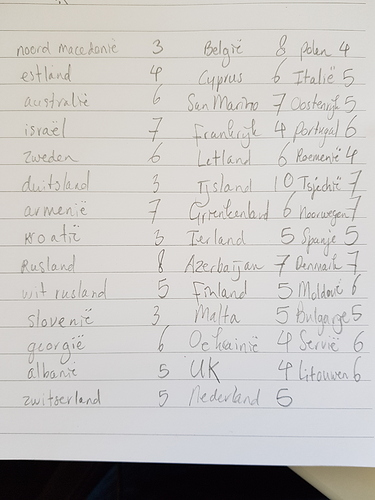 noord macedonië 3 België 8 polen 4
estland 4 Cyprus 6 Italië 5
australië 6 San Marino 7 Oostenrijk 5
israël 7 Frankrijk 4 portugal 6
zweden 6 Letland 6 Roemenië 4
duitsland 3 Ijsland 10 Tsjechië 7
armenië 7 Griekenland 6 Noorwegen 7
Kroatië 3 Ierland 5 Spanje 5
Rusland 8 Azerbaijan 7 Denmark 7
wit rusland 5 Finland 5 Moldovië 6
slovenië 3 Malta 5 Bulgarije 5
georgië 6 Oekrainië 4 Servië 6
albanië 5 UK 4 Litouwen 6
zwitserland 5 Nederland 5